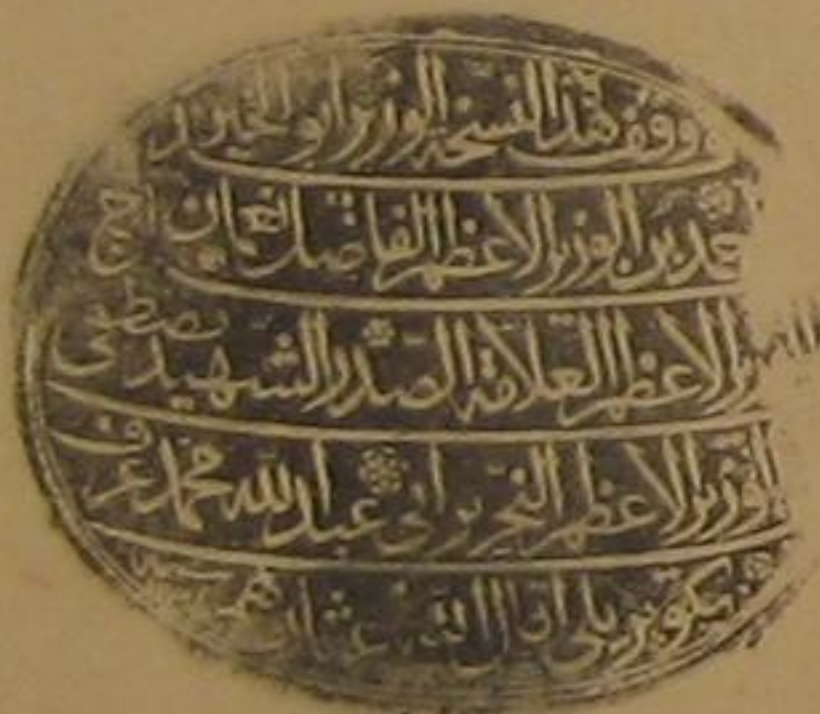 وقف هذا النسخة الوزير ابو الخير
احمد بن الوزير الاعظم الفاضل نعمان
الاعظم العلامة الصدر الشهيد مصطفى
الوزير الاعظم النحرير ابي عبد الله محمد عرف
بكوبريلي اقال الله عثارهم